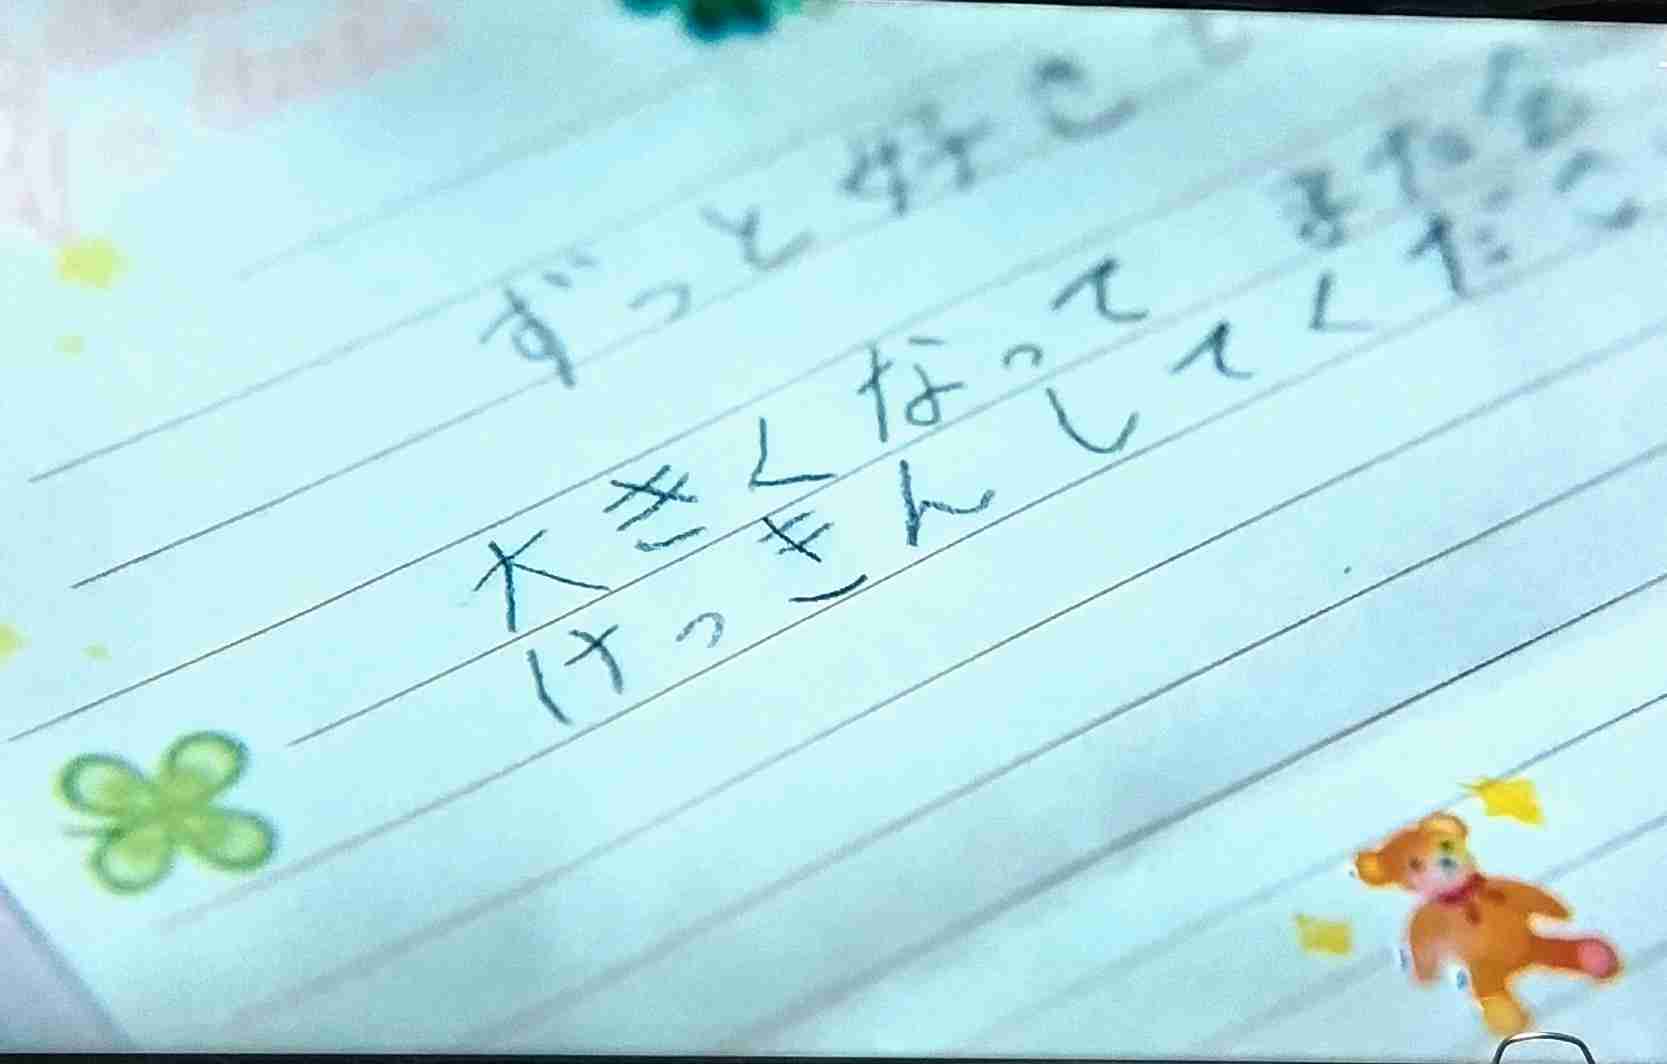 ずっと好きで
大きくなって また会
けっきんしてくださ